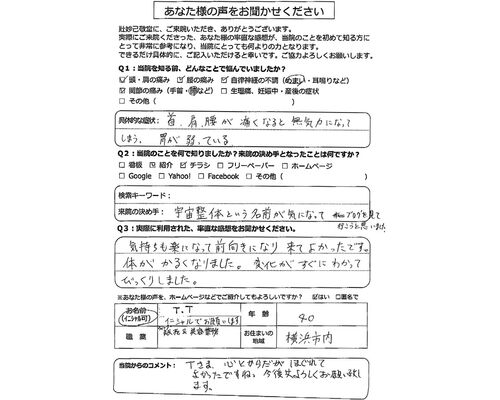 あなた様の声をお聞かせください
妊妙己敬堂に、ご来院いただき、ありがとうございます。
実際にご来院くださった、あなた様の率直な感想が、当院のことを初めて知る方に
とって非常に参考になり、当院にとっても何よりの力となります。
できるだけ具体的に、ご記入いただけると幸いです。ご協力よろしくお願いします。
Q1：当院を知る前、どんなことで悩んでいましたか？
☑ 頭・肩の痛み ☑ 腰の痛み ☑ 自律神経の不調（めまい・耳鳴りなど）
☑ 関節の痛み（手首・など） □ 生理痛、妊娠中・産後の症状
□ その他（ ）
具体的な症状： 首、肩、腰が痛くなると無気力になって
しまう、胃が弱っている
Q2：当院のことを何で知りましたか？来院の決め手となったことは何ですか？
□ 看板 ☑ 紹介 ☑ チラシ □ フリーペーパー □ ホームページ
□ Google □ Yahoo! □ Facebook □ その他（ ）
検索キーワード：
来院の決め手： 宇宙整体という名前が気になって ブログを見て
行こうと思いました
Q3：実際に利用された、率直な感想をお聞かせください。
気持ちも楽になって前向きになり来てよかったです。
体がかるくなりました。変化がすぐにわかって
びっくりしました。
※あなた様の声を、ホームページなどでご紹介してもよろしいですか？ ☑はい □匿名で
お名前（イニシャル可） T.T イニシャルでお願いします 年齢 40
職業 お住まいの地域 横浜市内
当院からのコメント： Tさま、心とからだがほぐれて
よかったですね。今後ともよろしくお願い致し
ます。